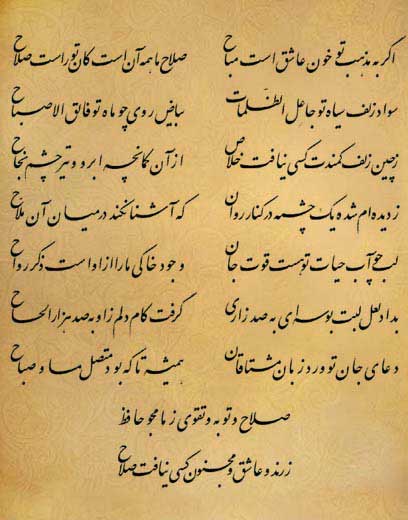 اگر به مذهب تو خون عاشق است مباح صلاح ما همه آن است کان تو راست صلاح
سواد زلف سیاه تو جاعل الظلمات بیاض روی چو ماه تو فالق الاصباح
ز چین زلف کمندت کسی نیافت خلاص از آن کمانچه ابرو و تیر چشم نجاح
ز دیده ام شده یک چشمه در کنار روان که آشنا نکند در میان آن ملاح
لب چو آب حیات تو هست قوت جان وجود خاکی ما را از او است ذکر رواح
بداد لعل لبت بوسه ای به صد زاری گرفت کام دلم ز او به صد هزار الحاح
دعای جان تو ورد زبان مشتاقان همیشه تا که بود متصل مسا و صباح
صلاح و توبه و تقوی ز ما مجو حافظ
ز رند و عاشق و مجنون کسی نیافت صلاح